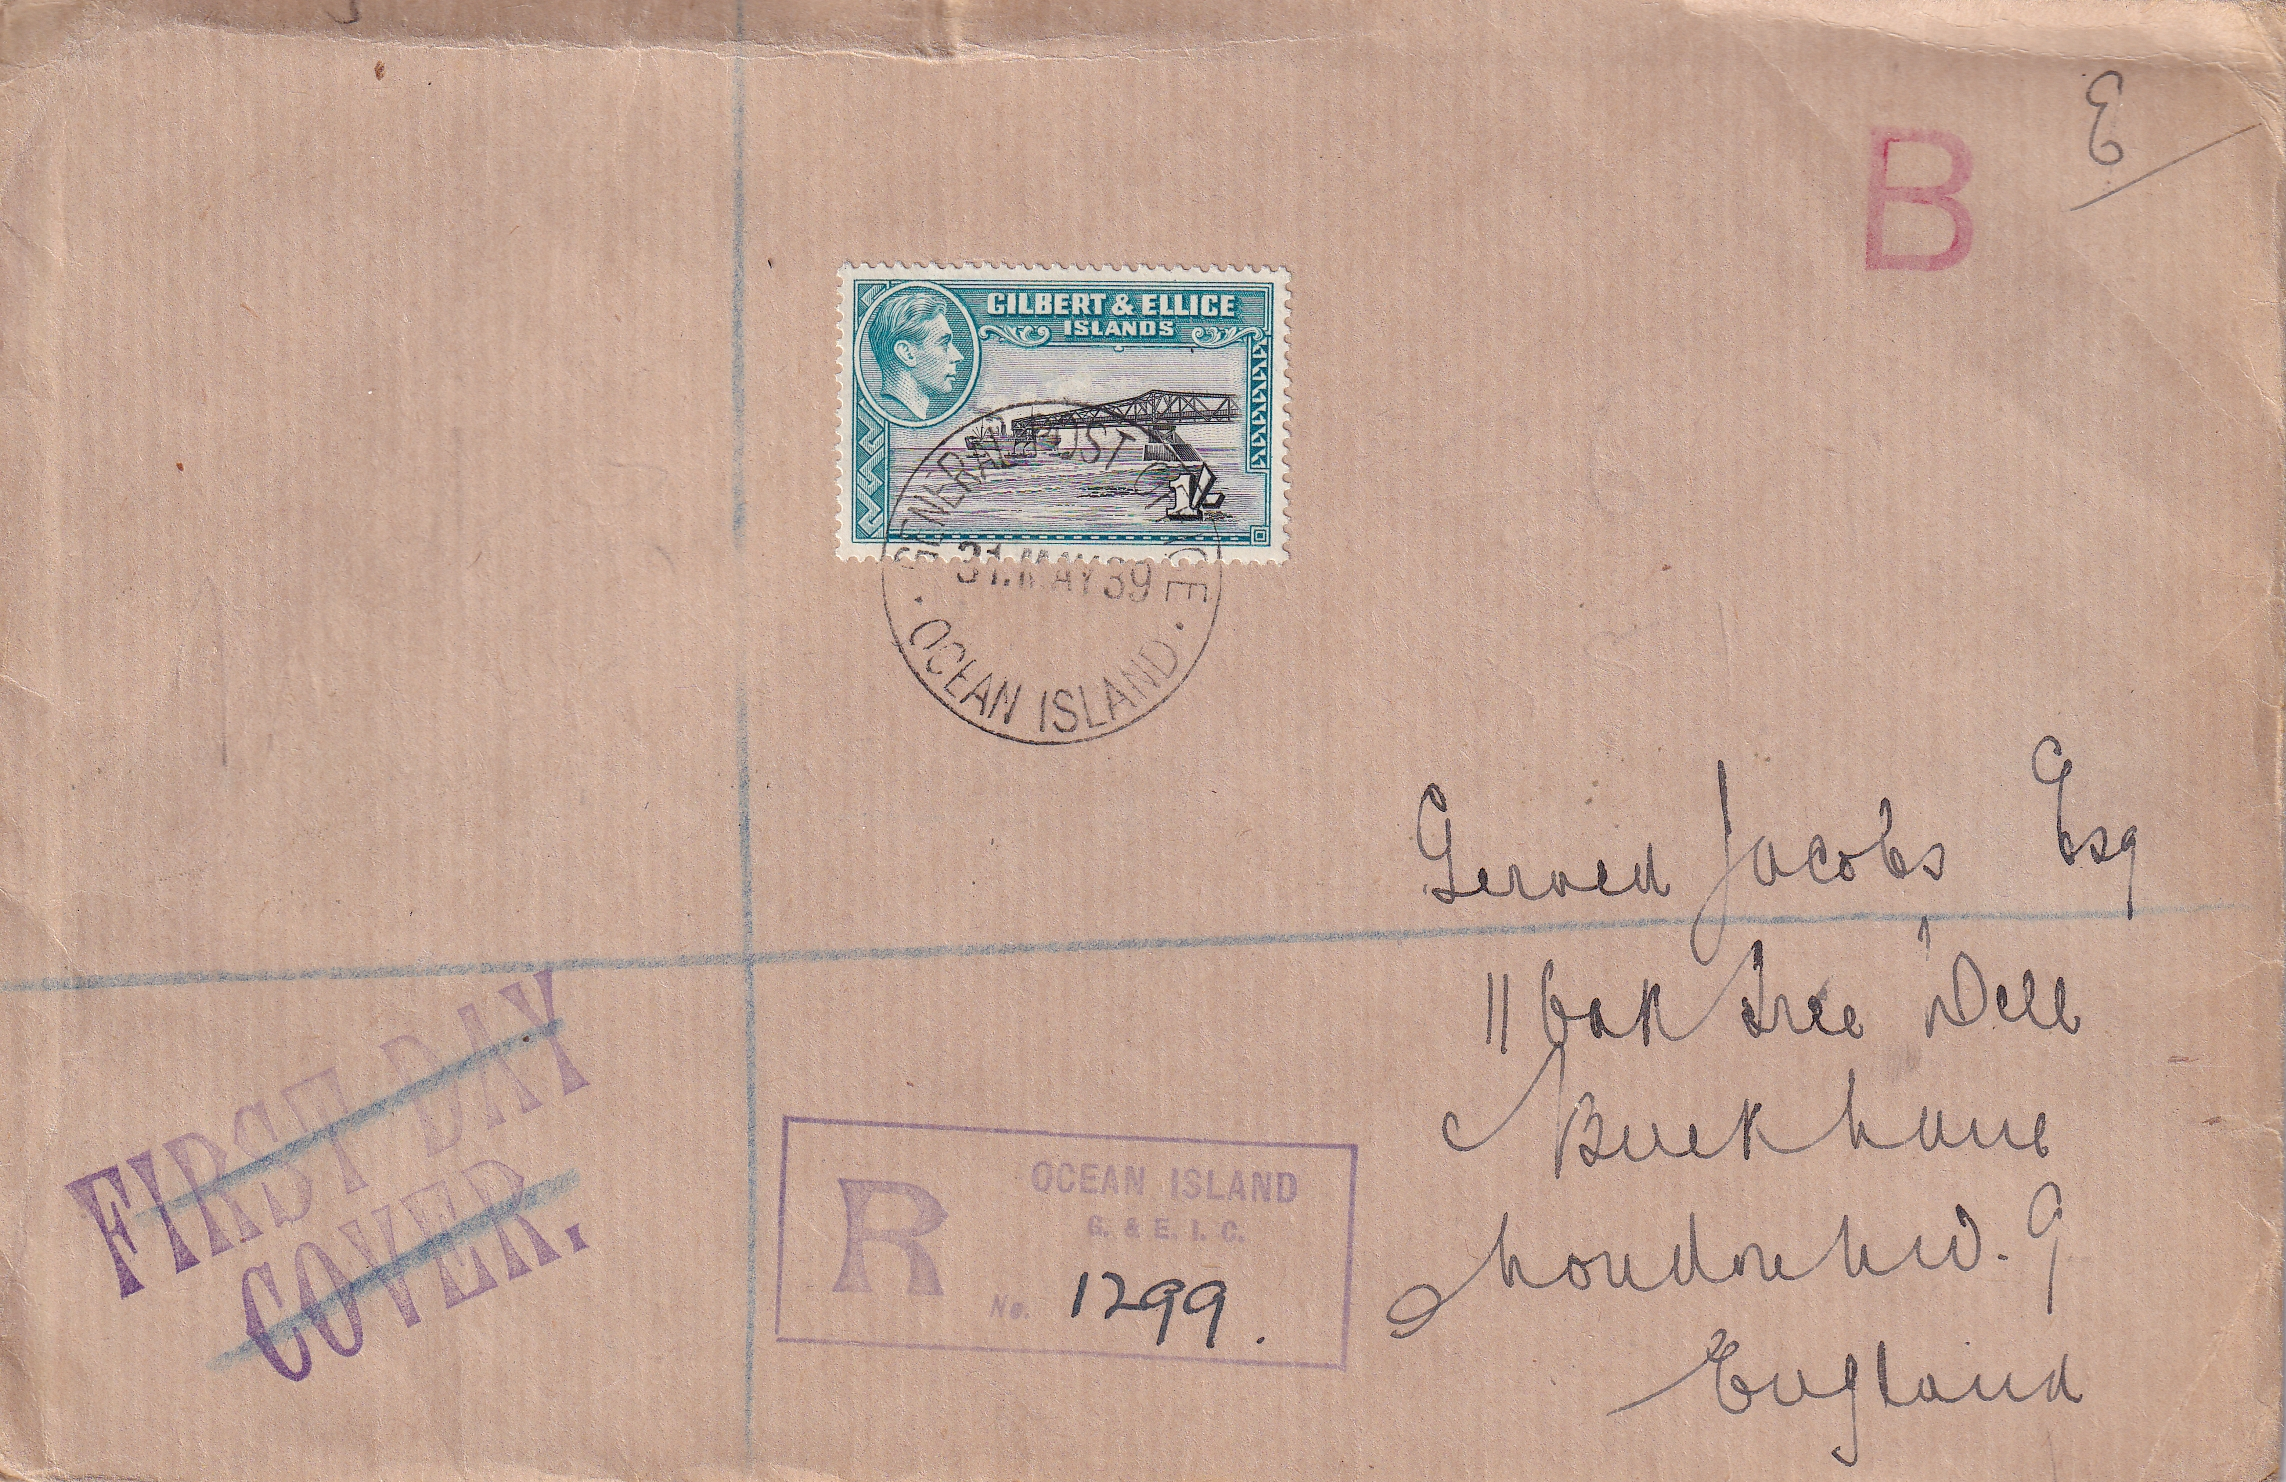 E
B
GILBERT & ELLICE
ISLANDS
1/-
GENERAL POST OFFICE
31.MAY39
OCEAN ISLAND
Jacobs Esq
11 Oak Tree Dell
London N.W.9
England
FIRST DAY
COVER.
R
OCEAN ISLAND
G. & E. I. C.
No. 1299.